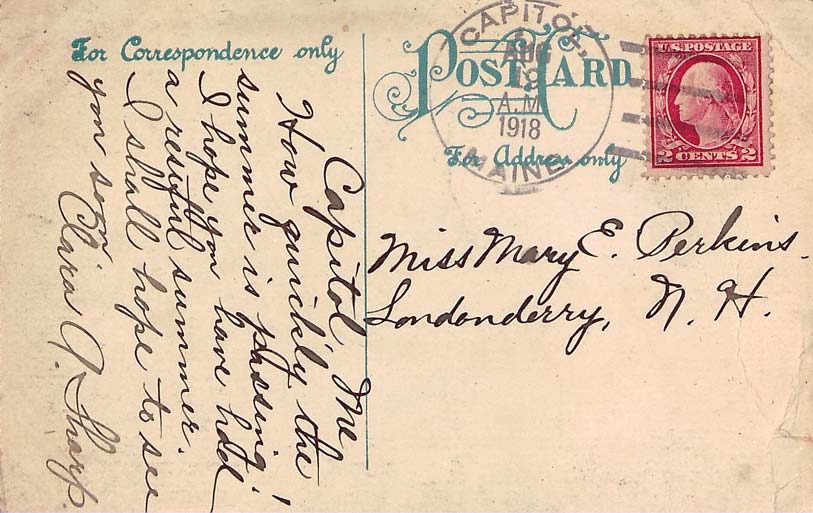 For Correspondence only
POST CARD
For Address only
CAPITOL,
AUG
19
A.M.
1918
MAINE
U.S. POSTAGE
2 CENTS 2
Capitol Me
How quickly the
summer is passing!
I hope you have had
a restful summer.
I shall hope to see
you soon
Clara A. Sharp.
Miss Mary E. Perkins.
Londonderry, N. H.